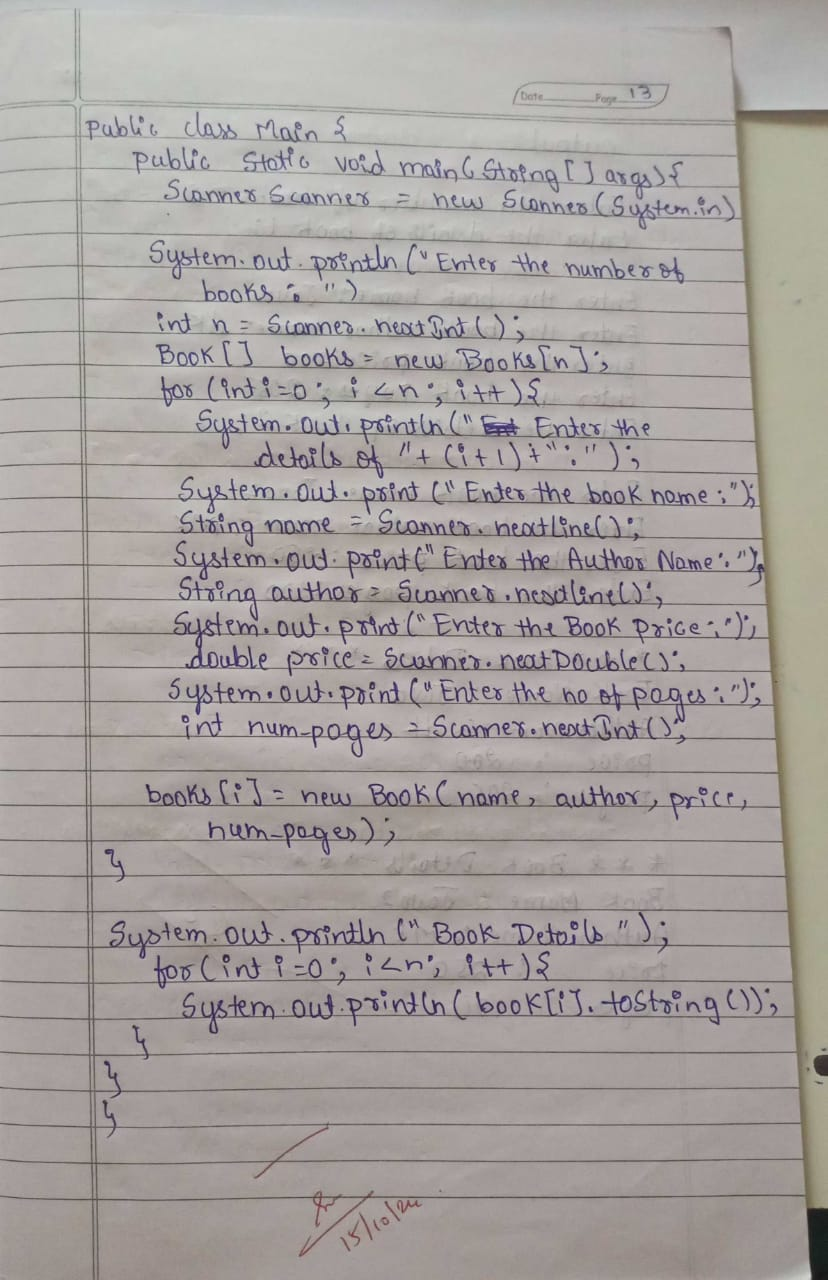 Date Page 13
public class Main {
public static void main(String [] args) {
Scanner Scanner = new Scanner (System.in)
System.out.println ("Enter the number of
books : ")
int n = Scanner.nextInt();
Book [] books = new Books[n];
for (int i=0; i<n; i++){
System.out.println (" Enter the
details of "+ (i+1)+":");
System.out.print ("Enter the book name:");
String name = Scanner.nextline();
System.out.print("Enter the Author Name:");
String author = Scanner.nextline();
System.out.print("Enter the Book Price:");
double price = Scanner.nextDouble();
System.out.print ("Enter the no of pages:");
int num-pages = Scanner.nextInt();
books [i] = new Book( name, author, price,
num-pages);
}
System.out.println (" Book Details ");
for (int i=0; i<n; i++){
System.out.println( book[i].toString());
}
}
}
15/10/24